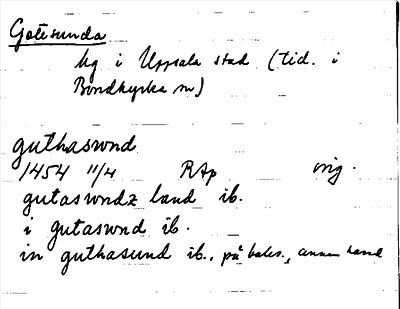 Gotesunda
hg i Uppsala stad (tid. i
Bondkyrka sn)
guthaswnd
1454 11/4 RAp orig.
gutaswndz land ib.
i gutaswnd ib.
in guthasund ib., på baks., annan hand